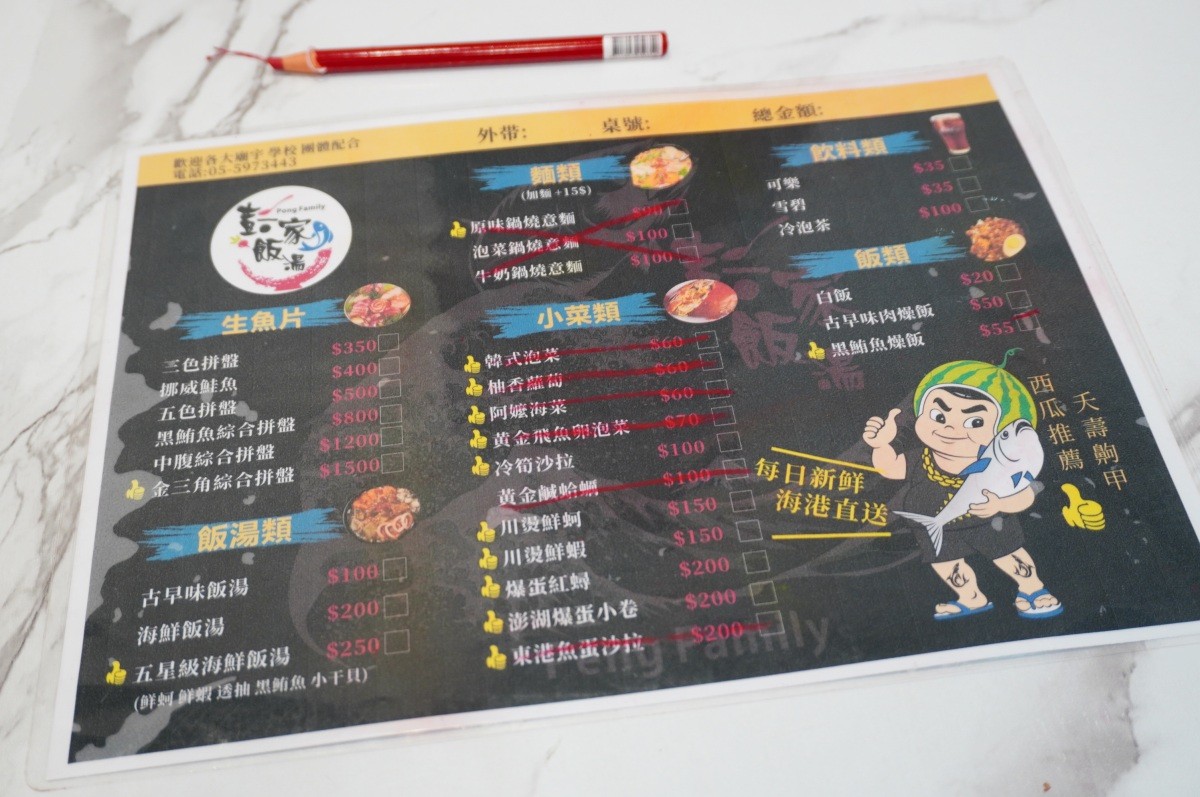 歡迎各大廟宇 學校 團體配合
電話:05-5973443
外带:
桌號:
總金額:
Peng Family
彭家
飯湯
生魚片
三色拼盤 $350
挪威鮭魚 $400
五色拼盤 $500
黑鮪魚綜合拼盤 $800
中腹綜合拼盤 $1200
金三角綜合拼盤 $1500
飯湯類
古早味飯湯 $100
海鮮飯湯 $200
五星級海鮮飯湯 $250
(鮮蚵 鮮蝦 透抽 黑鮪魚 小干貝)
麵類
(加麵 +15$)
原味鍋燒意麵 $90
泡菜鍋燒意麵 $100
牛奶鍋燒意麵 $100
小菜類
韓式泡菜 $60
柚香蘿蔔 $60
阿嬤海菜 $60
黃金飛魚卵泡菜 $70
冷筍沙拉 $100
黃金鹹蛤蜊 $100
川燙鮮蚵 $150
川燙鮮蝦 $150
爆蛋紅蟳 $200
澎湖爆蛋小卷 $200
東港魚蛋沙拉 $200
飲料類
可樂 $35
雪碧 $35
冷泡茶 $100
飯類
白飯 $20
古早味肉燥飯 $50
黑鮪魚燥飯 $55
每日新鮮
海港直送
西瓜推薦
夭壽齁甲
彭家
飯湯
Peng Family